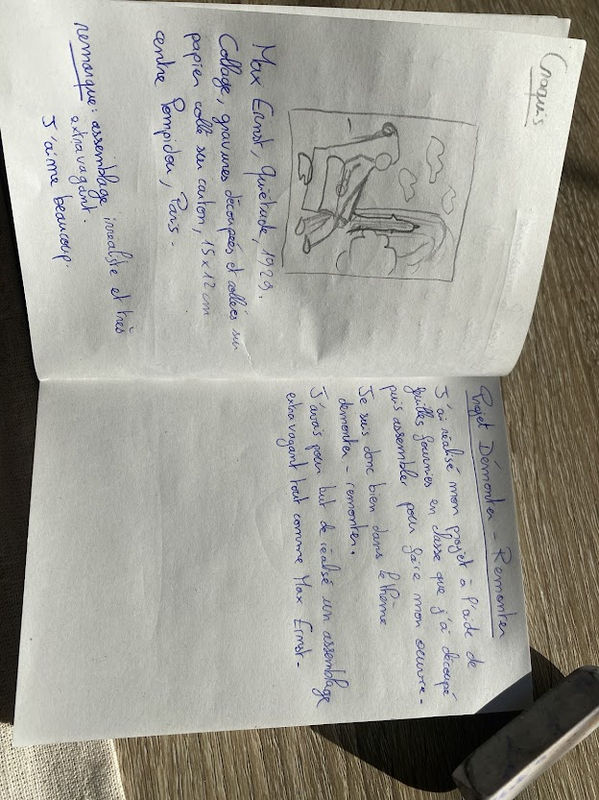 Croquis
Max Ernst, Quiétude, 1929.
Collage, gravures découpées et collées sur
papier collé sur carton, 15x12cm
centre Pompidou, Paris.
remarque: assemblage irréaliste et très
extravagant.
J'aime beaucoup.
Projet Démonter - Remonter
J'ai réalisé mon projet à l'aide de
feuilles fournies en classe que j'ai découpé
puis assemble pour faire mon oeuvre.
Je suis donc bien dans le thème
demonter - remonter.
J'avais pour but de réalisé un assemblage
extravagant tout comme Max Ernst.